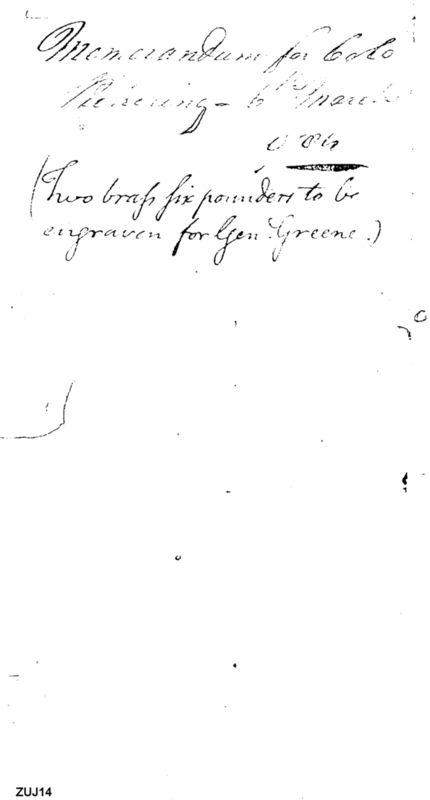 Memorandum for Colo
Pickering - 6th March
(Two brass six pounders to be
engraven for Gen. Greene.)
ZUJ14